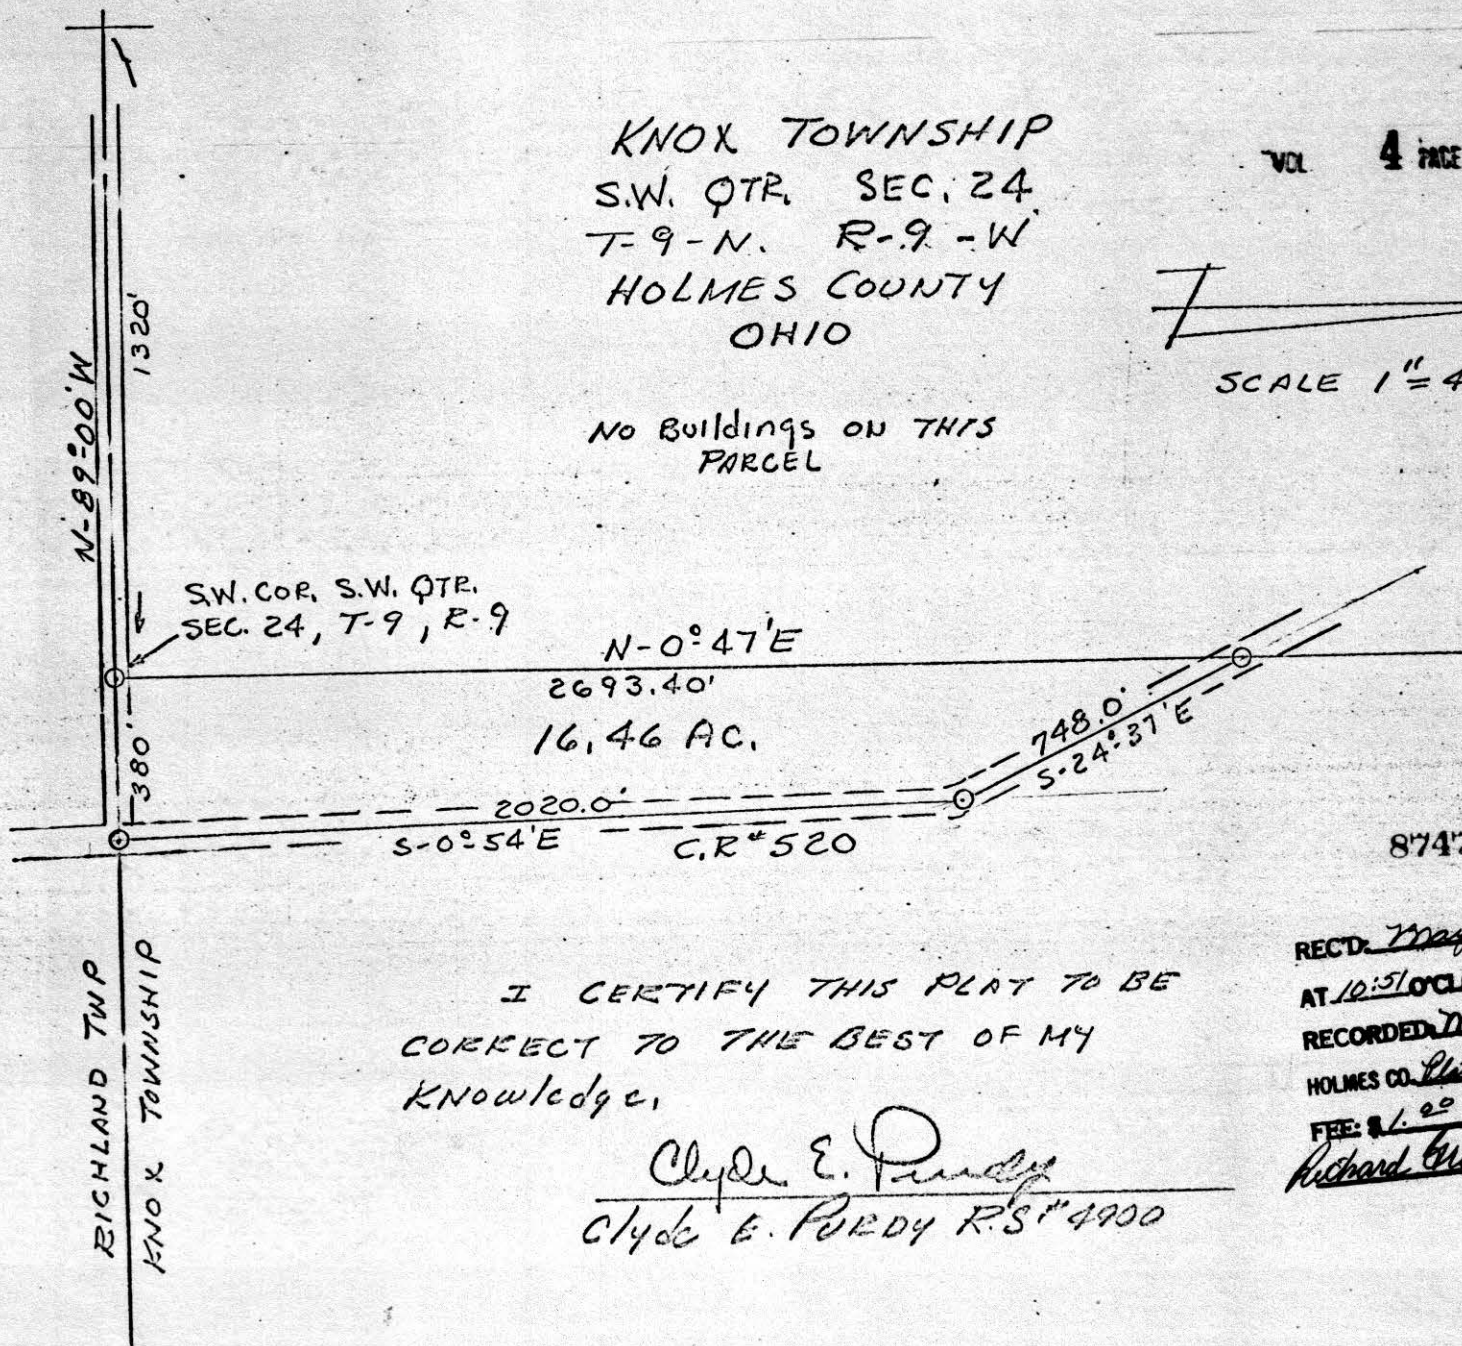 KNOX TOWNSHIP
S.W. QTR. SEC. 24
T-9-N. R-9-W
HOLMES COUNTY
OHIO
VOL 4 PAGE
SCALE 1"= 4
No Buildings ON THIS
PARCEL
1320'
N-89°-00'W
S.W. COR. S.W. QTR.
SEC. 24, T-9, R-9
N-0°47'E
2693.40'
16.46 AC.
748.0'
S-24°-37'E
380'
2020.0'
S-0°-54'E C.R#520
874
RICHLAND TWP
KNOX TOWNSHIP
I CERTIFY THIS PLAT TO BE
CORRECT TO THE BEST OF MY
KNOWledge.
Clyde E. Purdy
Clyde E. PURDY R.S.#4900
REC'D:
AT 10:51 O'CL
RECORDED:
HOLMES CO.
FEE: $1.00
Richard